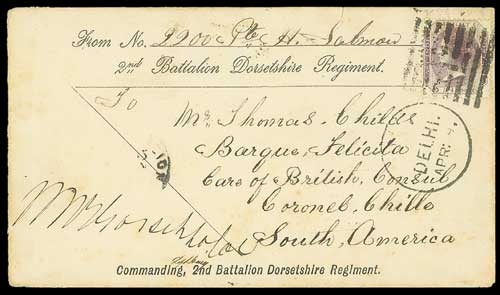 From No. 2200 Pte H. Salmon
2nd Battalion Dorsetshire Regiment.
To
Mrs Thomas Childs
Barque, Felicita
Care of British, Consul
Coronel, Chille
South, America
DELHI.
APR.
Commanding, 2nd Battalion Dorsetshire Regiment.